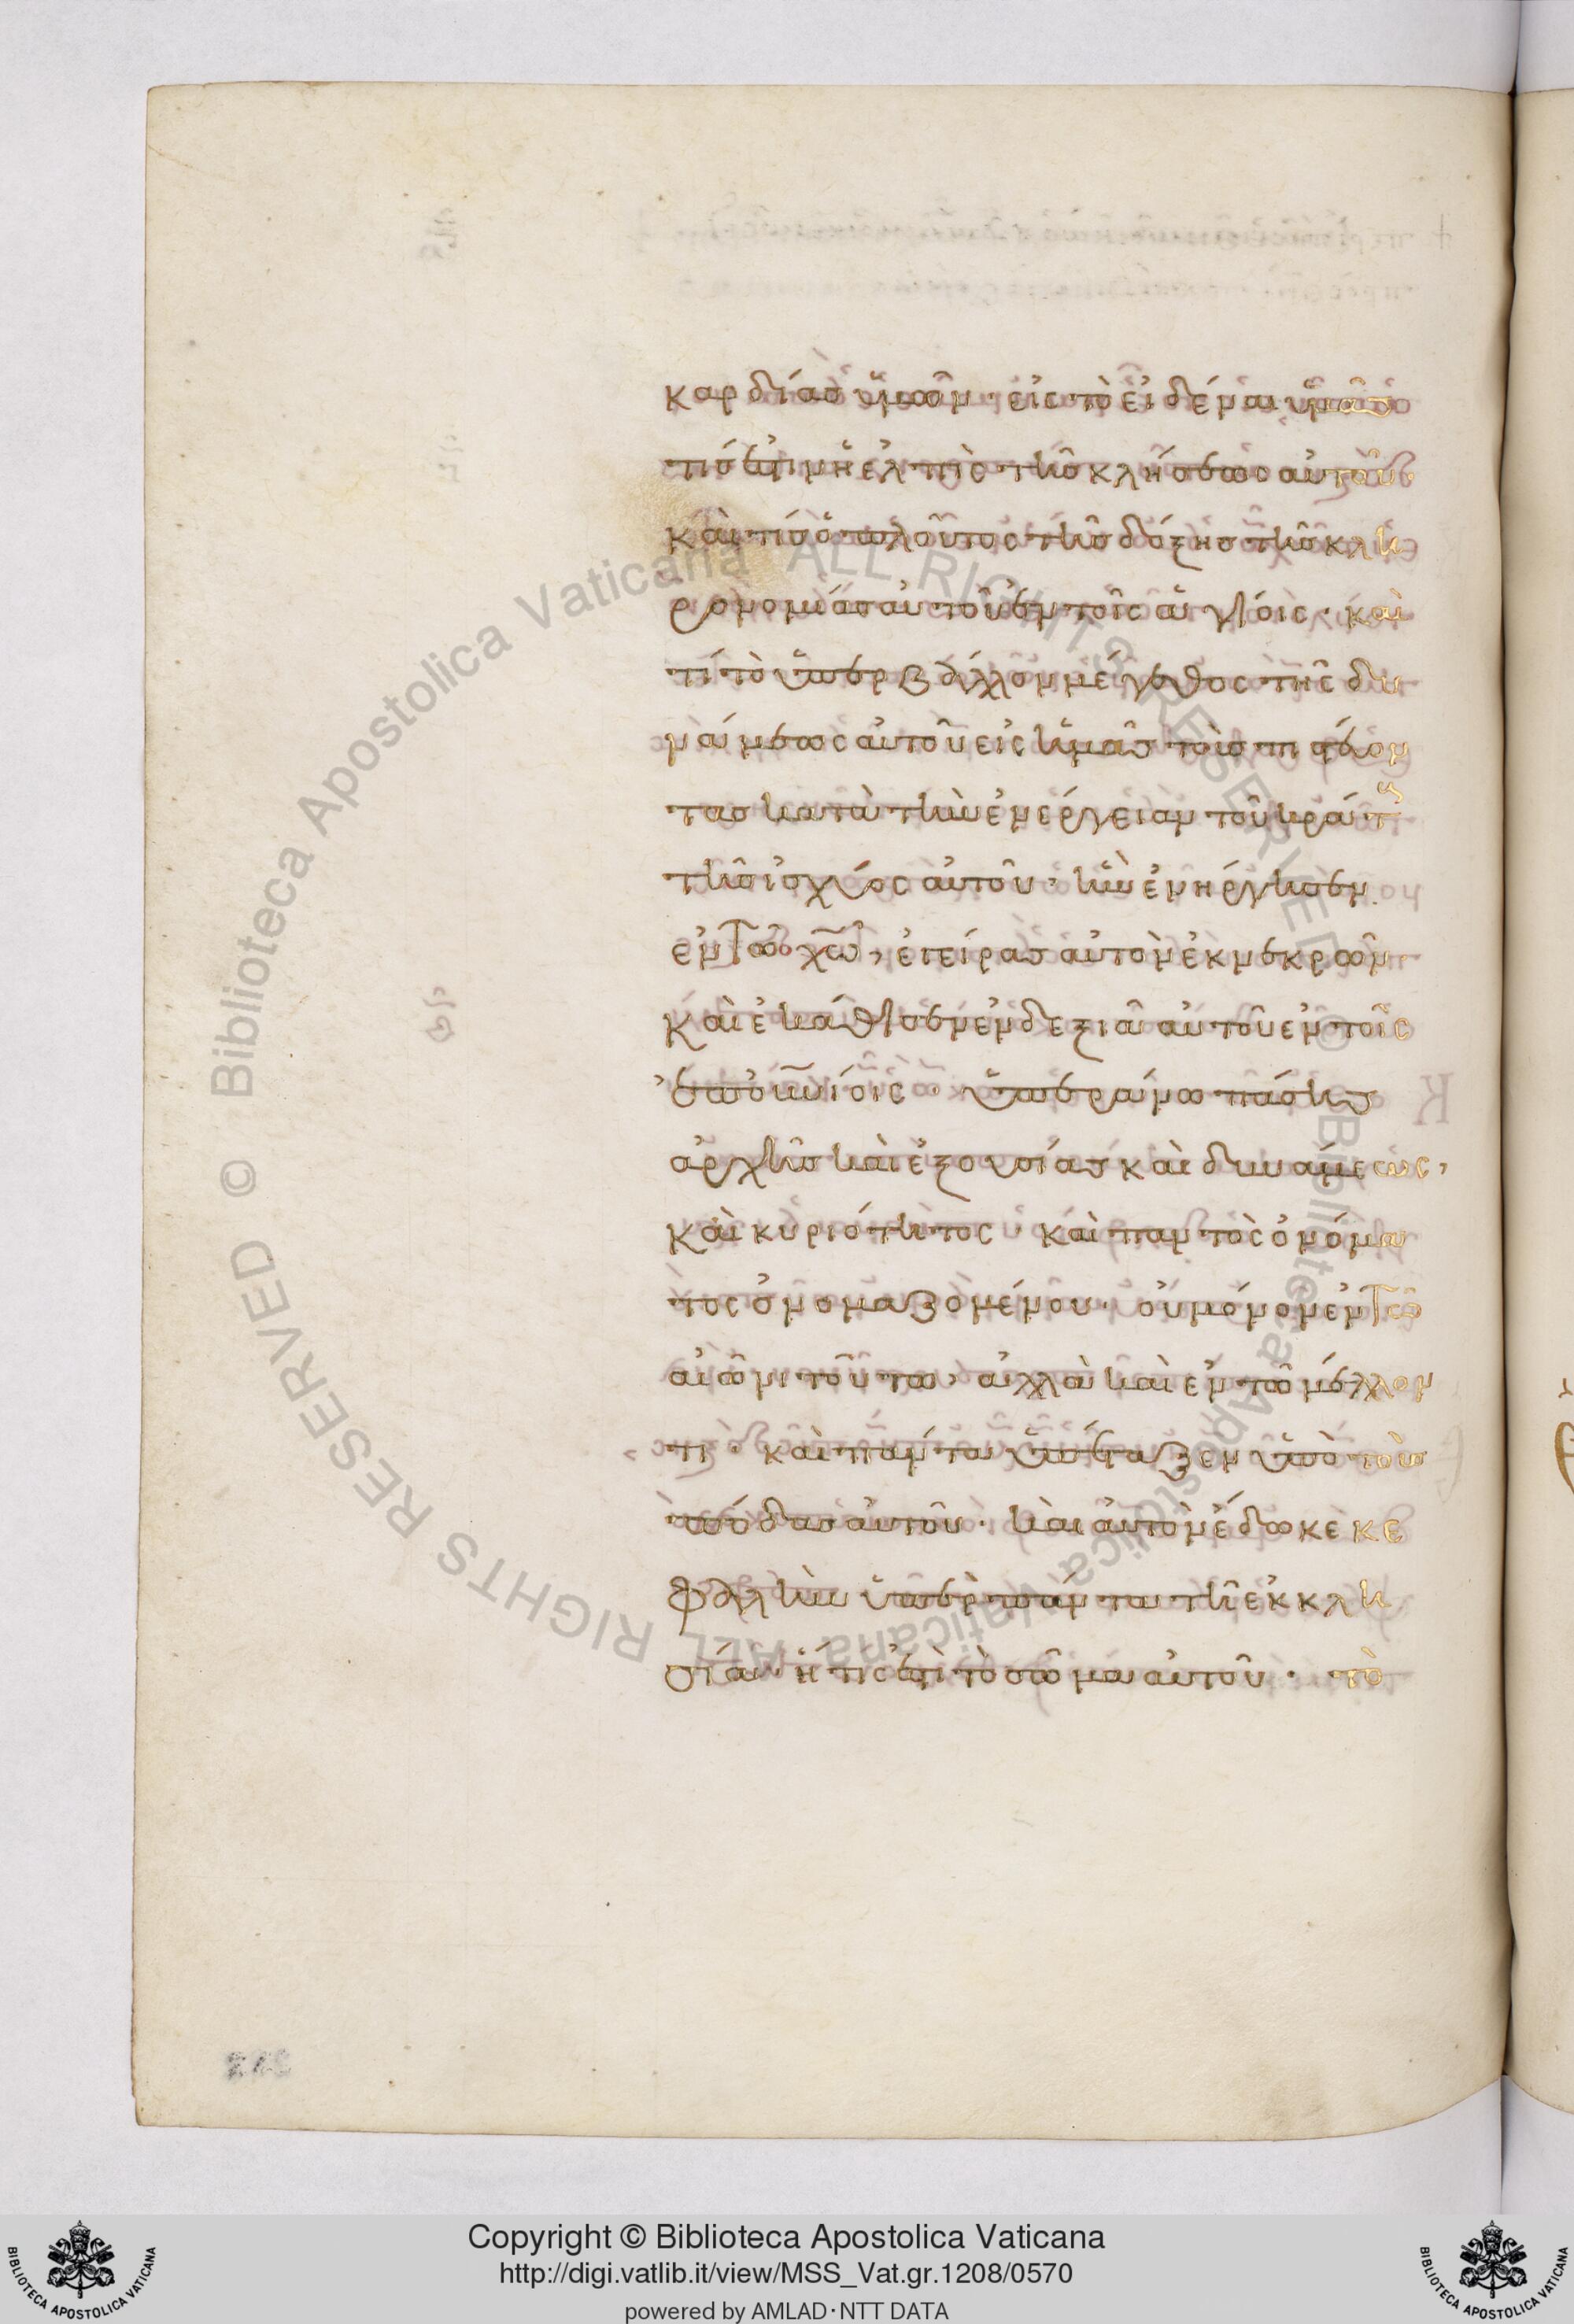 καρδίας ὑμῶν· εἰς τὸ εἰδέναι ὑμᾶς
τίς ἐστιν ἡ ἐλπὶς τῆς κλήσεως αὐτοῦ
καὶ τίς ὁ πλοῦτος τῆς δόξης τῆς κλη
ρονομίας αὐτοῦ ἐν τοῖς ἁγίοις· καὶ
τί τὸ ὑπερβάλλον μέγεθος τῆς δυ
νάμεως αὐτοῦ εἰς ἡμᾶς τοὺς πιστεύον
τας κατὰ τὴν ἐνέργειαν τοῦ κράτους
τῆς ἰσχύος αὐτοῦ· ἣν ἐνήργησεν
ἐν τῶ χω, ἐγείρας αὐτὸν ἐκ νεκρῶν
καὶ ἐκάθισεν ἐν δεξιᾶ αὐτοῦ ἐν τοῖς
ἐπουνίοις ὑπεράνω πάσης
ἀρχῆς καὶ ἐξουσίας καὶ δυνάμεως,
καὶ κυριότητος καὶ παντὸς ὀνόμα
τος ὀνομαζομένου· οὐ μόνον ἐν τῶ
αἰῶνι τούτω, ἀλλὰ καὶ ἐν τῶ μέλλον
τι· καὶ πάντα ὑπέταξεν ὑπὸ τοὺς
πόδας αὐτοῦ· καὶ αὐτὸν ἔδωκε κε
φαλὴν ὑπὲρ πάντα τῆ ἐκκλη
σία ἥτις ἐστὶ τὸ σῶμα αὐτοῦ· τὸ
Copyright © Biblioteca Apostolica Vaticana
http://digi.vatlib.it/view/MSS_Vat.gr.1208/0570
powered by AMLAD·NTT DATA
BIBLIOTECA APOSTOLICA VATICANA
BIBLIOTECA APOSTOLICA VATICANA
© Biblioteca Apostolica Vaticana ALL RIGHTS RESERVED
© Biblioteca Apostolica Vaticana ALL RIGHTS RESERVED